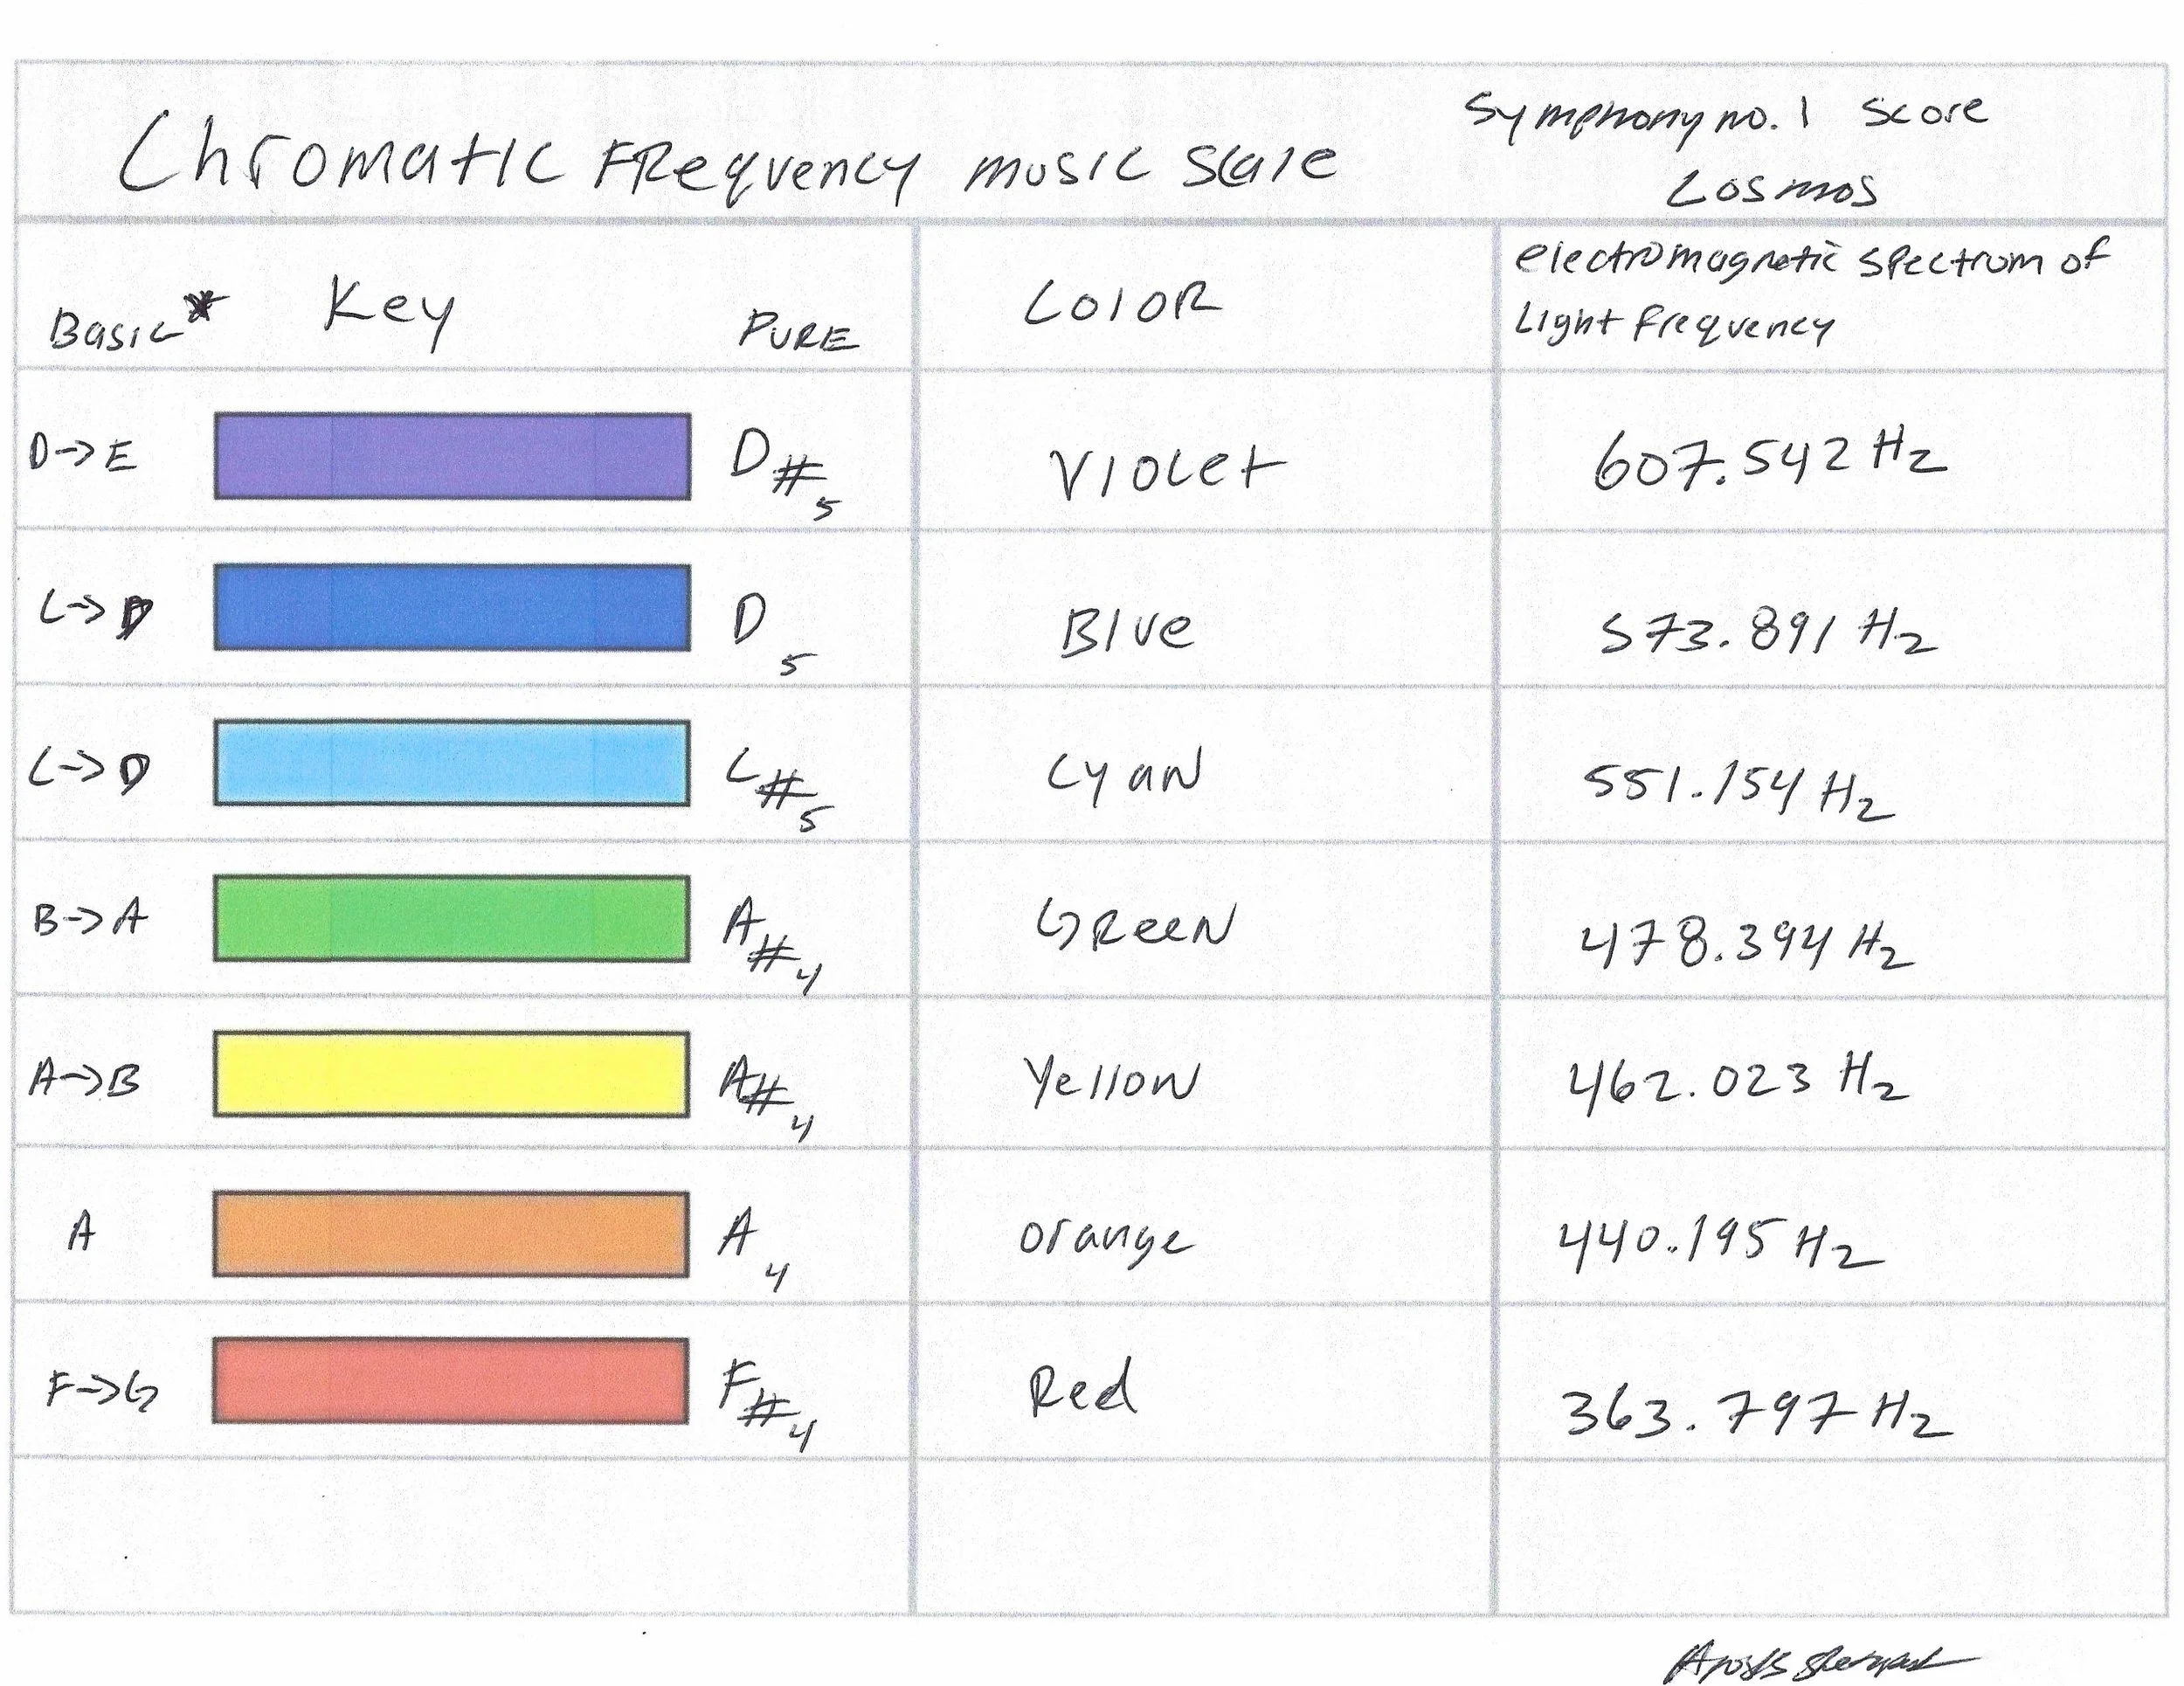 Chromatic Frequency music scale
Symphony no. 1 score
Cosmos
Basic* Key PURE
Color
electromagnetic spectrum of
Light frequency
D→E D#5 Violet 607.542 Hz
C→D D5 Blue 573.891 Hz
C→D C#5 Cyan 551.154 Hz
B→A A#4 Green 478.394 Hz
A→B A#4 Yellow 462.023 Hz
A A4 orange 440.195 Hz
F→G F#4 Red 363.797 Hz